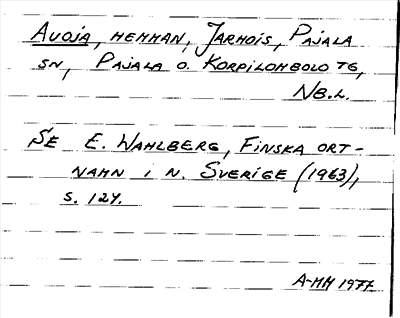 Avoja, hemman, Jarhois, Pajala
sn, Pajala o. Korpilombolo tg,
Nb.l.
Se E. Wahlberg, Finska ort-
namn i n. Sverige (1963),
s. 124.
A-MH 1977